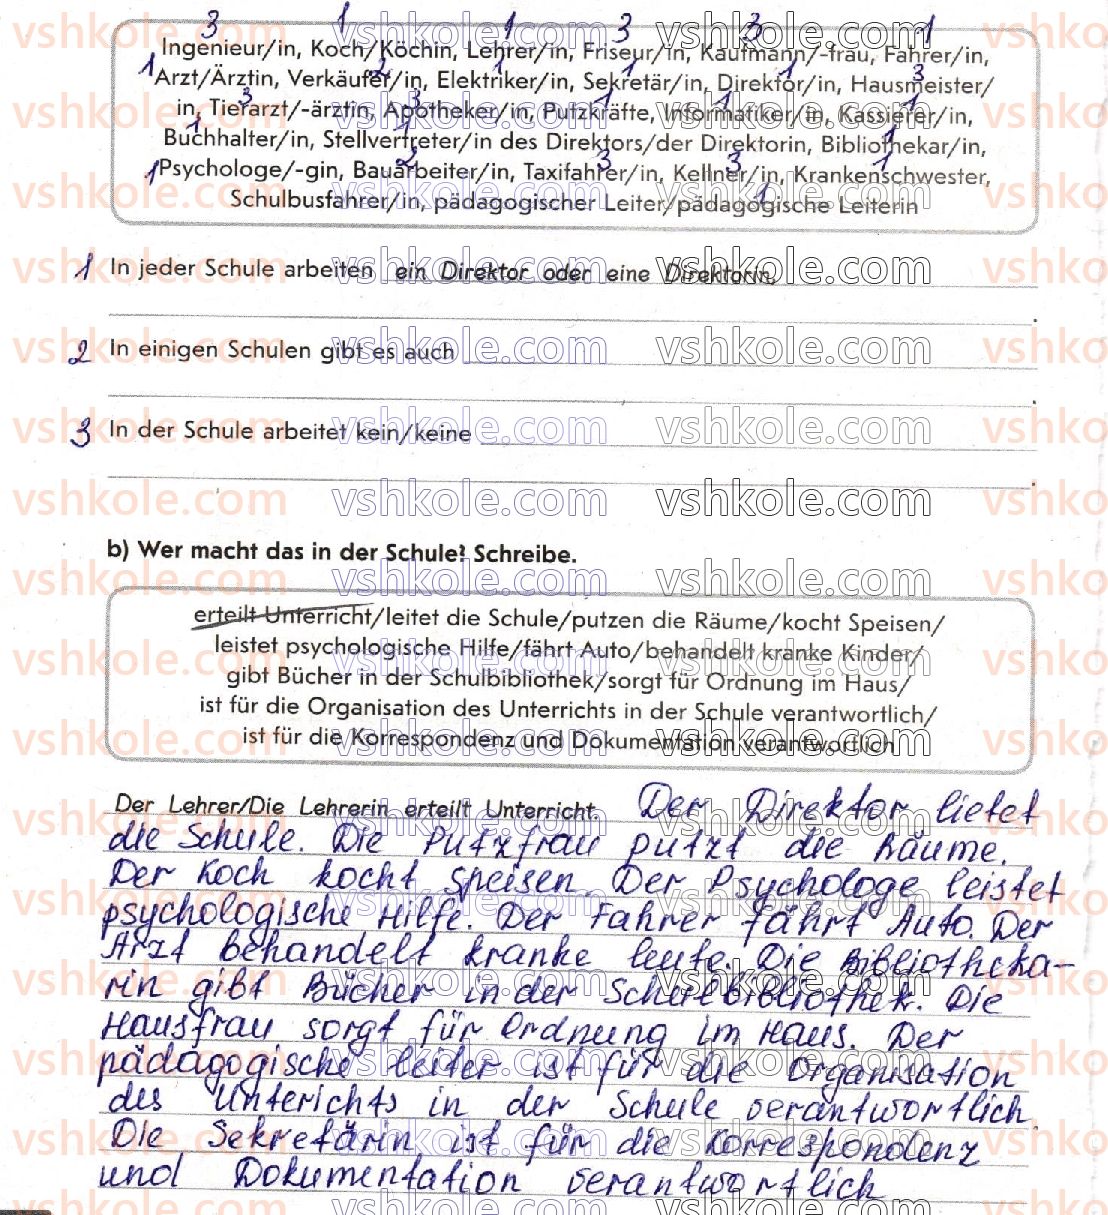 3 1 1 3 3 1
Ingenieur/in, Koch/Köchin, Lehrer/in, Friseur/in, Kaufmann/-frau, Fahrer/in,
1 2 1 1 1 3
Arzt/Ärztin, Verkäufer/in, Elektriker/in, Sekretär/in, Direktor/in, Hausmeister/
3 3 1 1 1
in, Tierarzt/-ärztin, Apotheker/in, Putzkräfte, Informatiker/in, Kassierer/in,
1 1 1
Buchhalter/in, Stellvertreter/in des Direktors/der Direktorin, Bibliothekar/in,
1 2 3 3 1
Psychologe/-gin, Bauarbeiter/in, Taxifahrer/in, Kellner/in, Krankenschwester,
1
Schulbusfahrer/in, pädagogischer Leiter/pädagogische Leiterin
1 In jeder Schule arbeiten ein Direktor oder eine Direktorin,
2 In einigen Schulen gibt es auch
3 In der Schule arbeitet kein/keine
b) Wer macht das in der Schule? Schreibe.
erteilt Unterricht/leitet die Schule/putzen die Räume/kocht Speisen/
leistet psychologische Hilfe/fährt Auto/behandelt kranke Kinder/
gibt Bücher in der Schulbibliothek/sorgt für Ordnung im Haus/
ist für die Organisation des Unterrichts in der Schule verantwortlich/
ist für die Korrespondenz und Dokumentation verantwortlich
Der Lehrer/Die Lehrerin erteilt Unterricht. Der Direktor lietet
die Schule. Die Putzfrau putzt die Räume.
Der Koch kocht speisen. Der Psychologe leistet
psychologische Hilfe. Der Fahrer fährt Auto. Der
Arzt behandelt kranke leute. Die Bibliotheka-
rin gibt Bücher in der Schulbibliothek. Die
Hausfrau sorgt für Ordnung im Haus. Der
pädagogische leiter ist für die Organisation
des Unterichts in der Schule verantwortlich.
Die Sekretärin ist für die Korrespondenz
und Dokumentation verantwortlich
vshkole.com